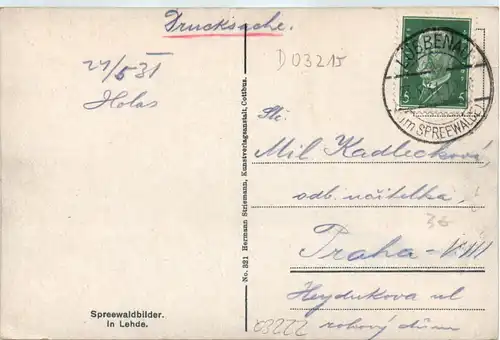 Drucksache.
D03215
21/5 31
Holas
LÜBBENAU
im SPREEWALDE
5 5
Mil Kadlecková,
odb. učitelka,
36
Praha-VIII
Heydukova ul
rohový dům
03222
No. 321 Hermann Striemann, Kunstverlagsanstalt, Cottbus.
Spreewaldbilder.
In Lehde.